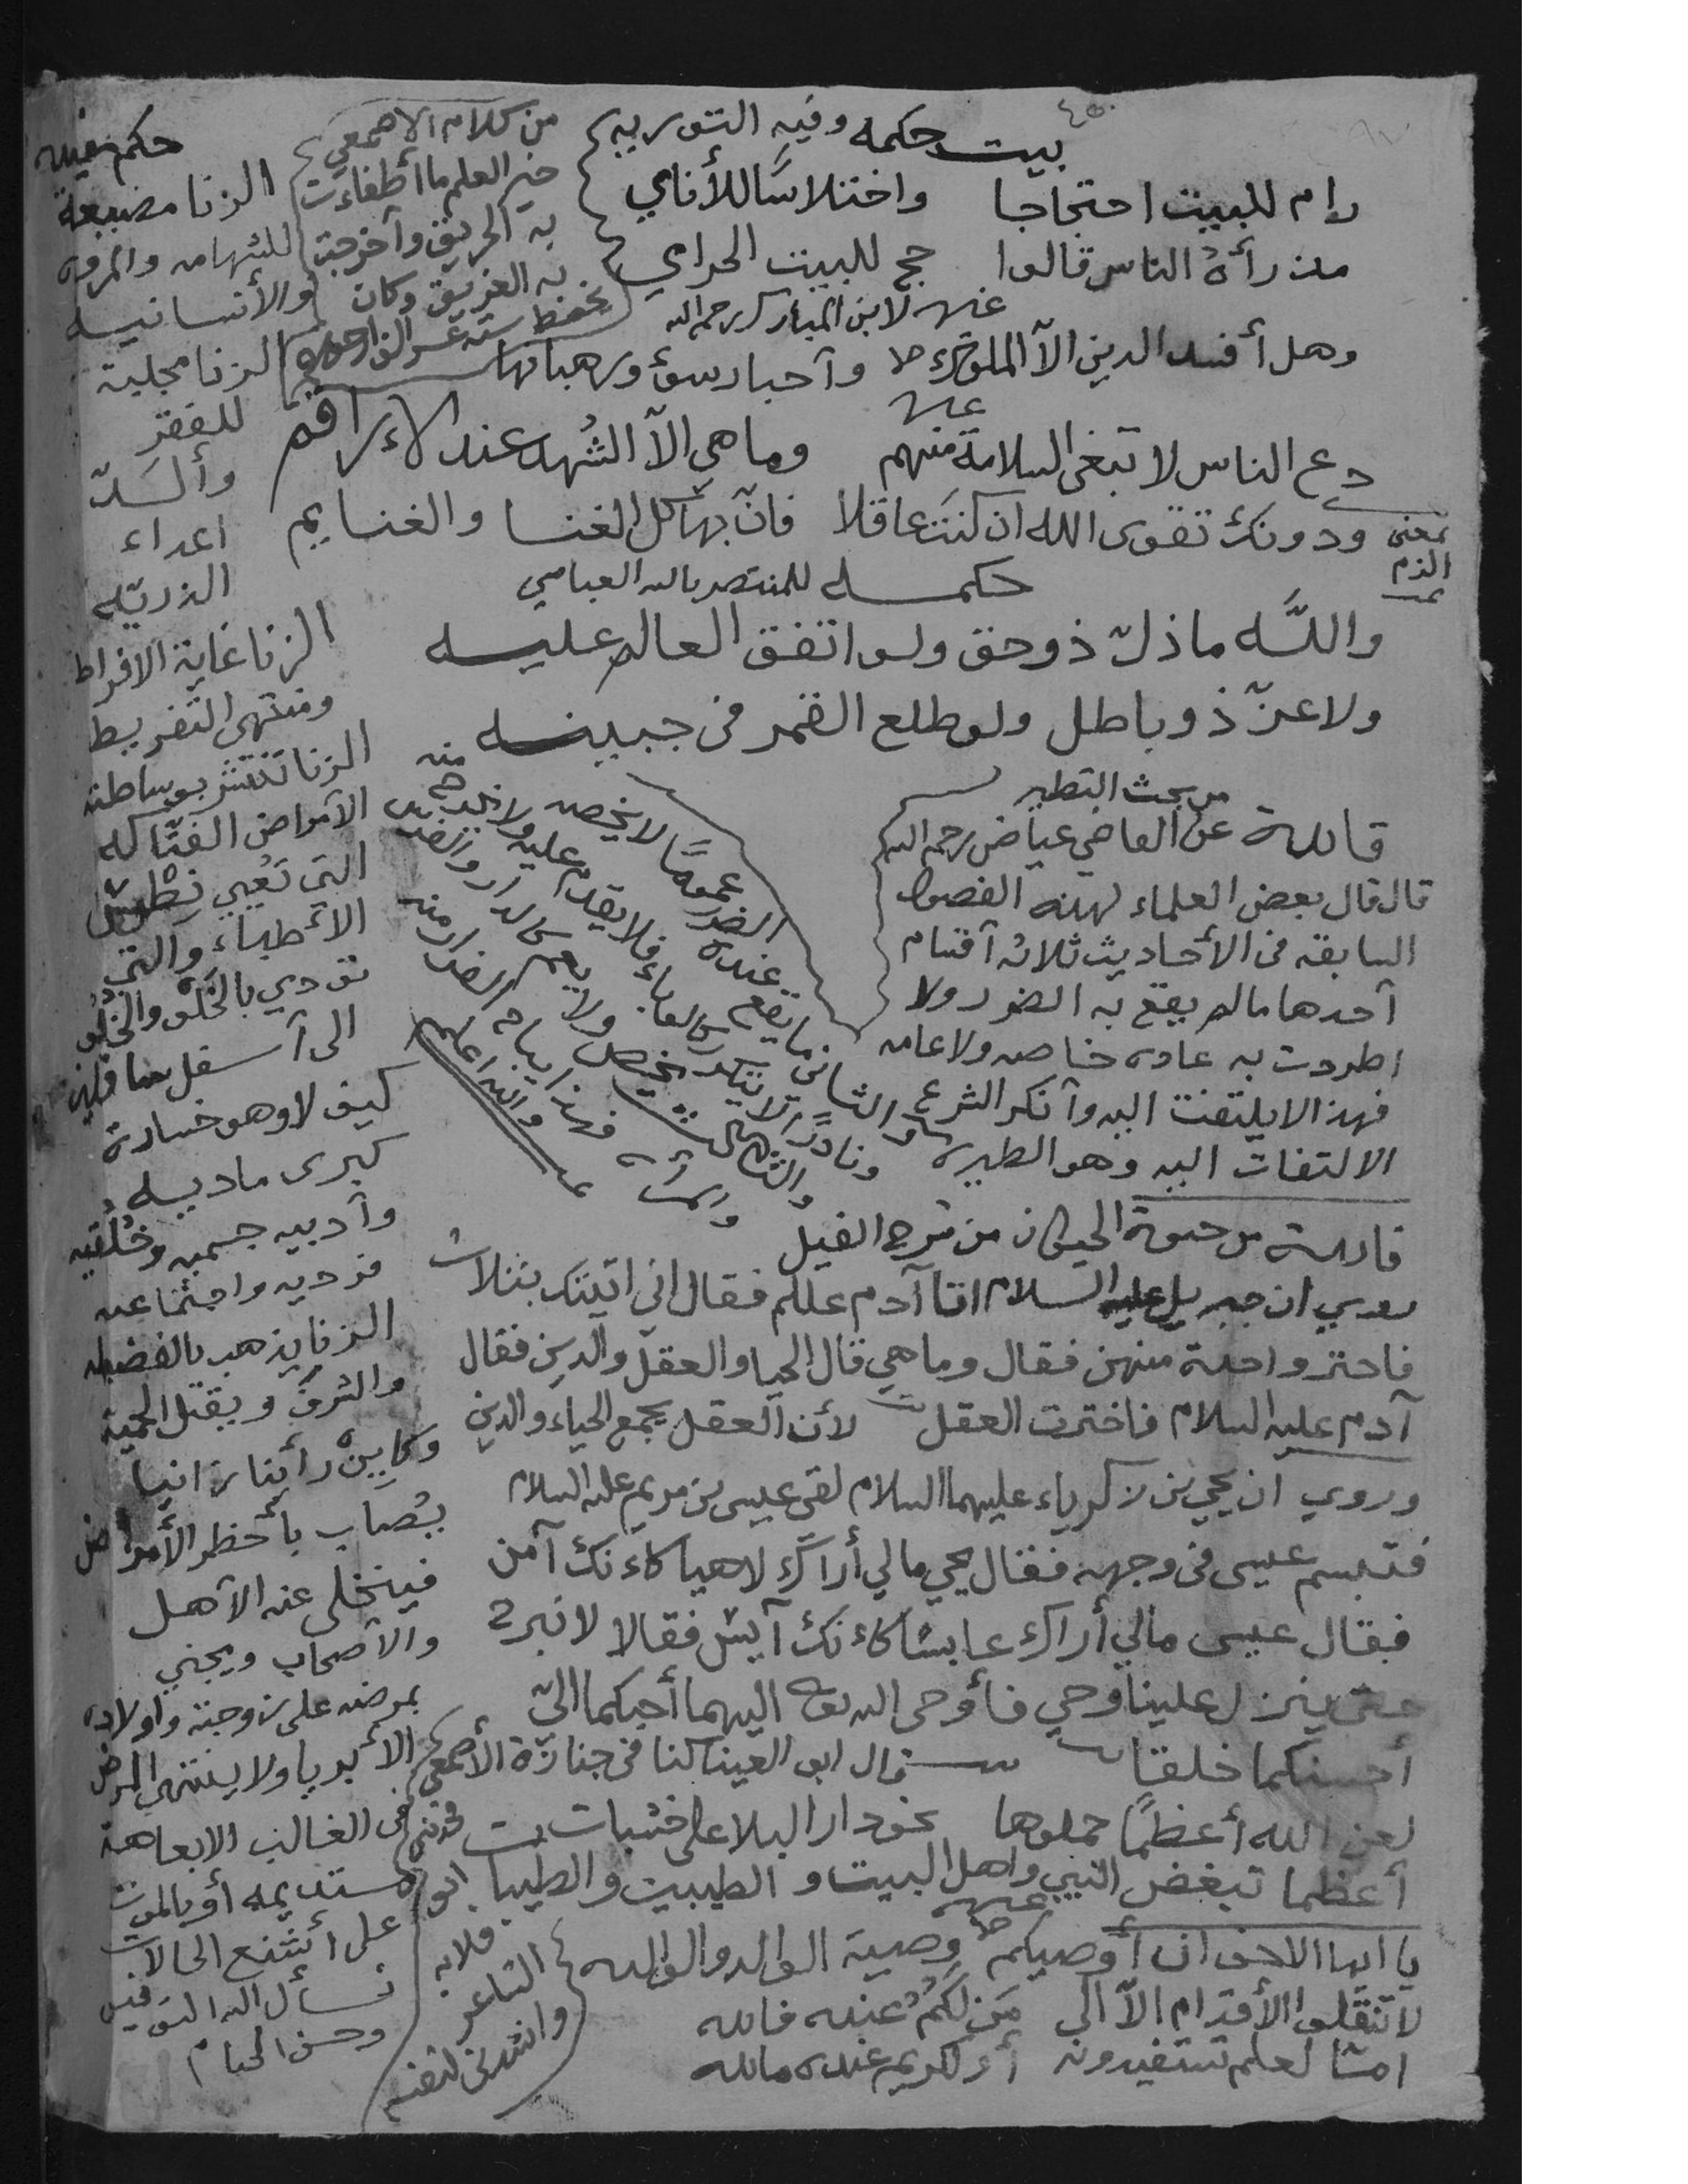 بيت حكمه وفيه التوريه
رام للبيت احتجاجا واختلاسًا للأنامي
من رأهُ الناس قالوا حج للبيت الحرامي
غيره لابن المبارك رحمه الله
وهل أفسد الدين الآ الملوك وآحبار سوء ورهبانها
غيره
دع الناس لا تبغى السلامة منهم وما هي الآ الشهد عند الاراقم
ودونك تقوى الله ان كنت عاقلا فانّ بها كل الغنا والغنايم
بمعنى
الزم
حكمــه للمنتصر بالله العباسي
واللَّه ما ذلّ ذو حق ولو اتفق العالم عليــه
ولا عزّ ذو باطل ولو طلع القمر فى جبينــه
من بحث التطير
فائدة عن القاضي عياض رحمه الله
قال قال بعض العلماء لهذه الفصول
السابقه فى الأحاديث ثلاثه آقسام
آحدها مالم يقع به الضرر ولا
اطردت به عاده خاصه ولا عامه
فهذا لا يلتفت اليه وآنكر الشرع
الالتفات اليه وهو الطيره
والثاني ما يقع عنده الضرر عمومًا لا يخصه
ونادرًا لا يتكرر كالوباء فلا يقدم عليه ولا يخرج منه
والثالث يخص ولا يعم كالدار والفرس
والمرأه فهذا يباح الفرار منه
والله اعلم
فائدة من حيوة الحيوان من شرح الفيل
روي ان جبريل عليه السلام اتا آدم علم فقال اني اتيتك بثلاث
فاختر واحدة منهن فقال وما هي قال الحيا والعقل والدين فقال
آدم عليه السلام فاخترت العقل لأن العقل يجمع الحياء والدين
وروي آن يحي بن زكرياء عليهما السلام لقى عيسى بن مريم عليه السلام
فتبسم عيسى فى وجهه فقال يحي مالي أراك لاهيا كاءنك آمن
فقال عيسى مالي أراك عابسًا كاءنك آيس فقالا لا نبرح
حتى ينزل علينا وحي فأوحى الله تعا اليهما أحبكما اليّ
أحسنكما خلقا قال ابو العينا كنا فى جنازة الأصمعي
فحدثني
ابو
قلابه
الشاعر
وانشدنى لنفسه
لعن الله أعظمًا حملوها نحو دار البلا على خشبات
أعظما تبغض النبي واهل البيت والطيبين والطيبات
غيره
يا ايها الاخوان أوصيكم وصية الوالد والوالده
لا تنقلوا الأقدام الآ الى من لكُمُ عنده فائده
امّا لعلم تستفيدونه أو لكريم عنده مائده
من كلام الاصمعي
خير العلم ما أطفاءت
به الحريق وآخرجت
به الغريق وكان
يحفظ سته عشر الف ارجوزه
حكم نفيسه
الزنا مضيعة
للشهامه والمروه
والأنسانيه
الزنا مجلبة
للفقر
وألسدّ
اعداء
الذريّه
الزنا غاية الافراط
ومنتهى التفريط
الزنا تنتشر بوساطته
الآمراض الفتّاكه
التي تعيي نطس
الأطباء والتي
تؤدي بالخَلق والخُلُق
الى آسفل سافلين
كيف لا وهو خسارة
كبرى ماديه
وآدبيه جسميه وخُلُقيه
فرديه واجتماعيه
الزنا يذهب بالفضيله
والشرف ويقتل الحمية
وكايين رأينا زانيا
يُصاب بأخطر الأمراض
فيتخلى عنه الآهل
والآصحاب ويجني
بمرضه على زوجته واولاده
الأبريا ولا ينتهي المرض
فى الغالب الا بعاهة
مستديمه أو بالموت
على أشنع الحالات
نسأل الله التوفيق
وحسن الختام